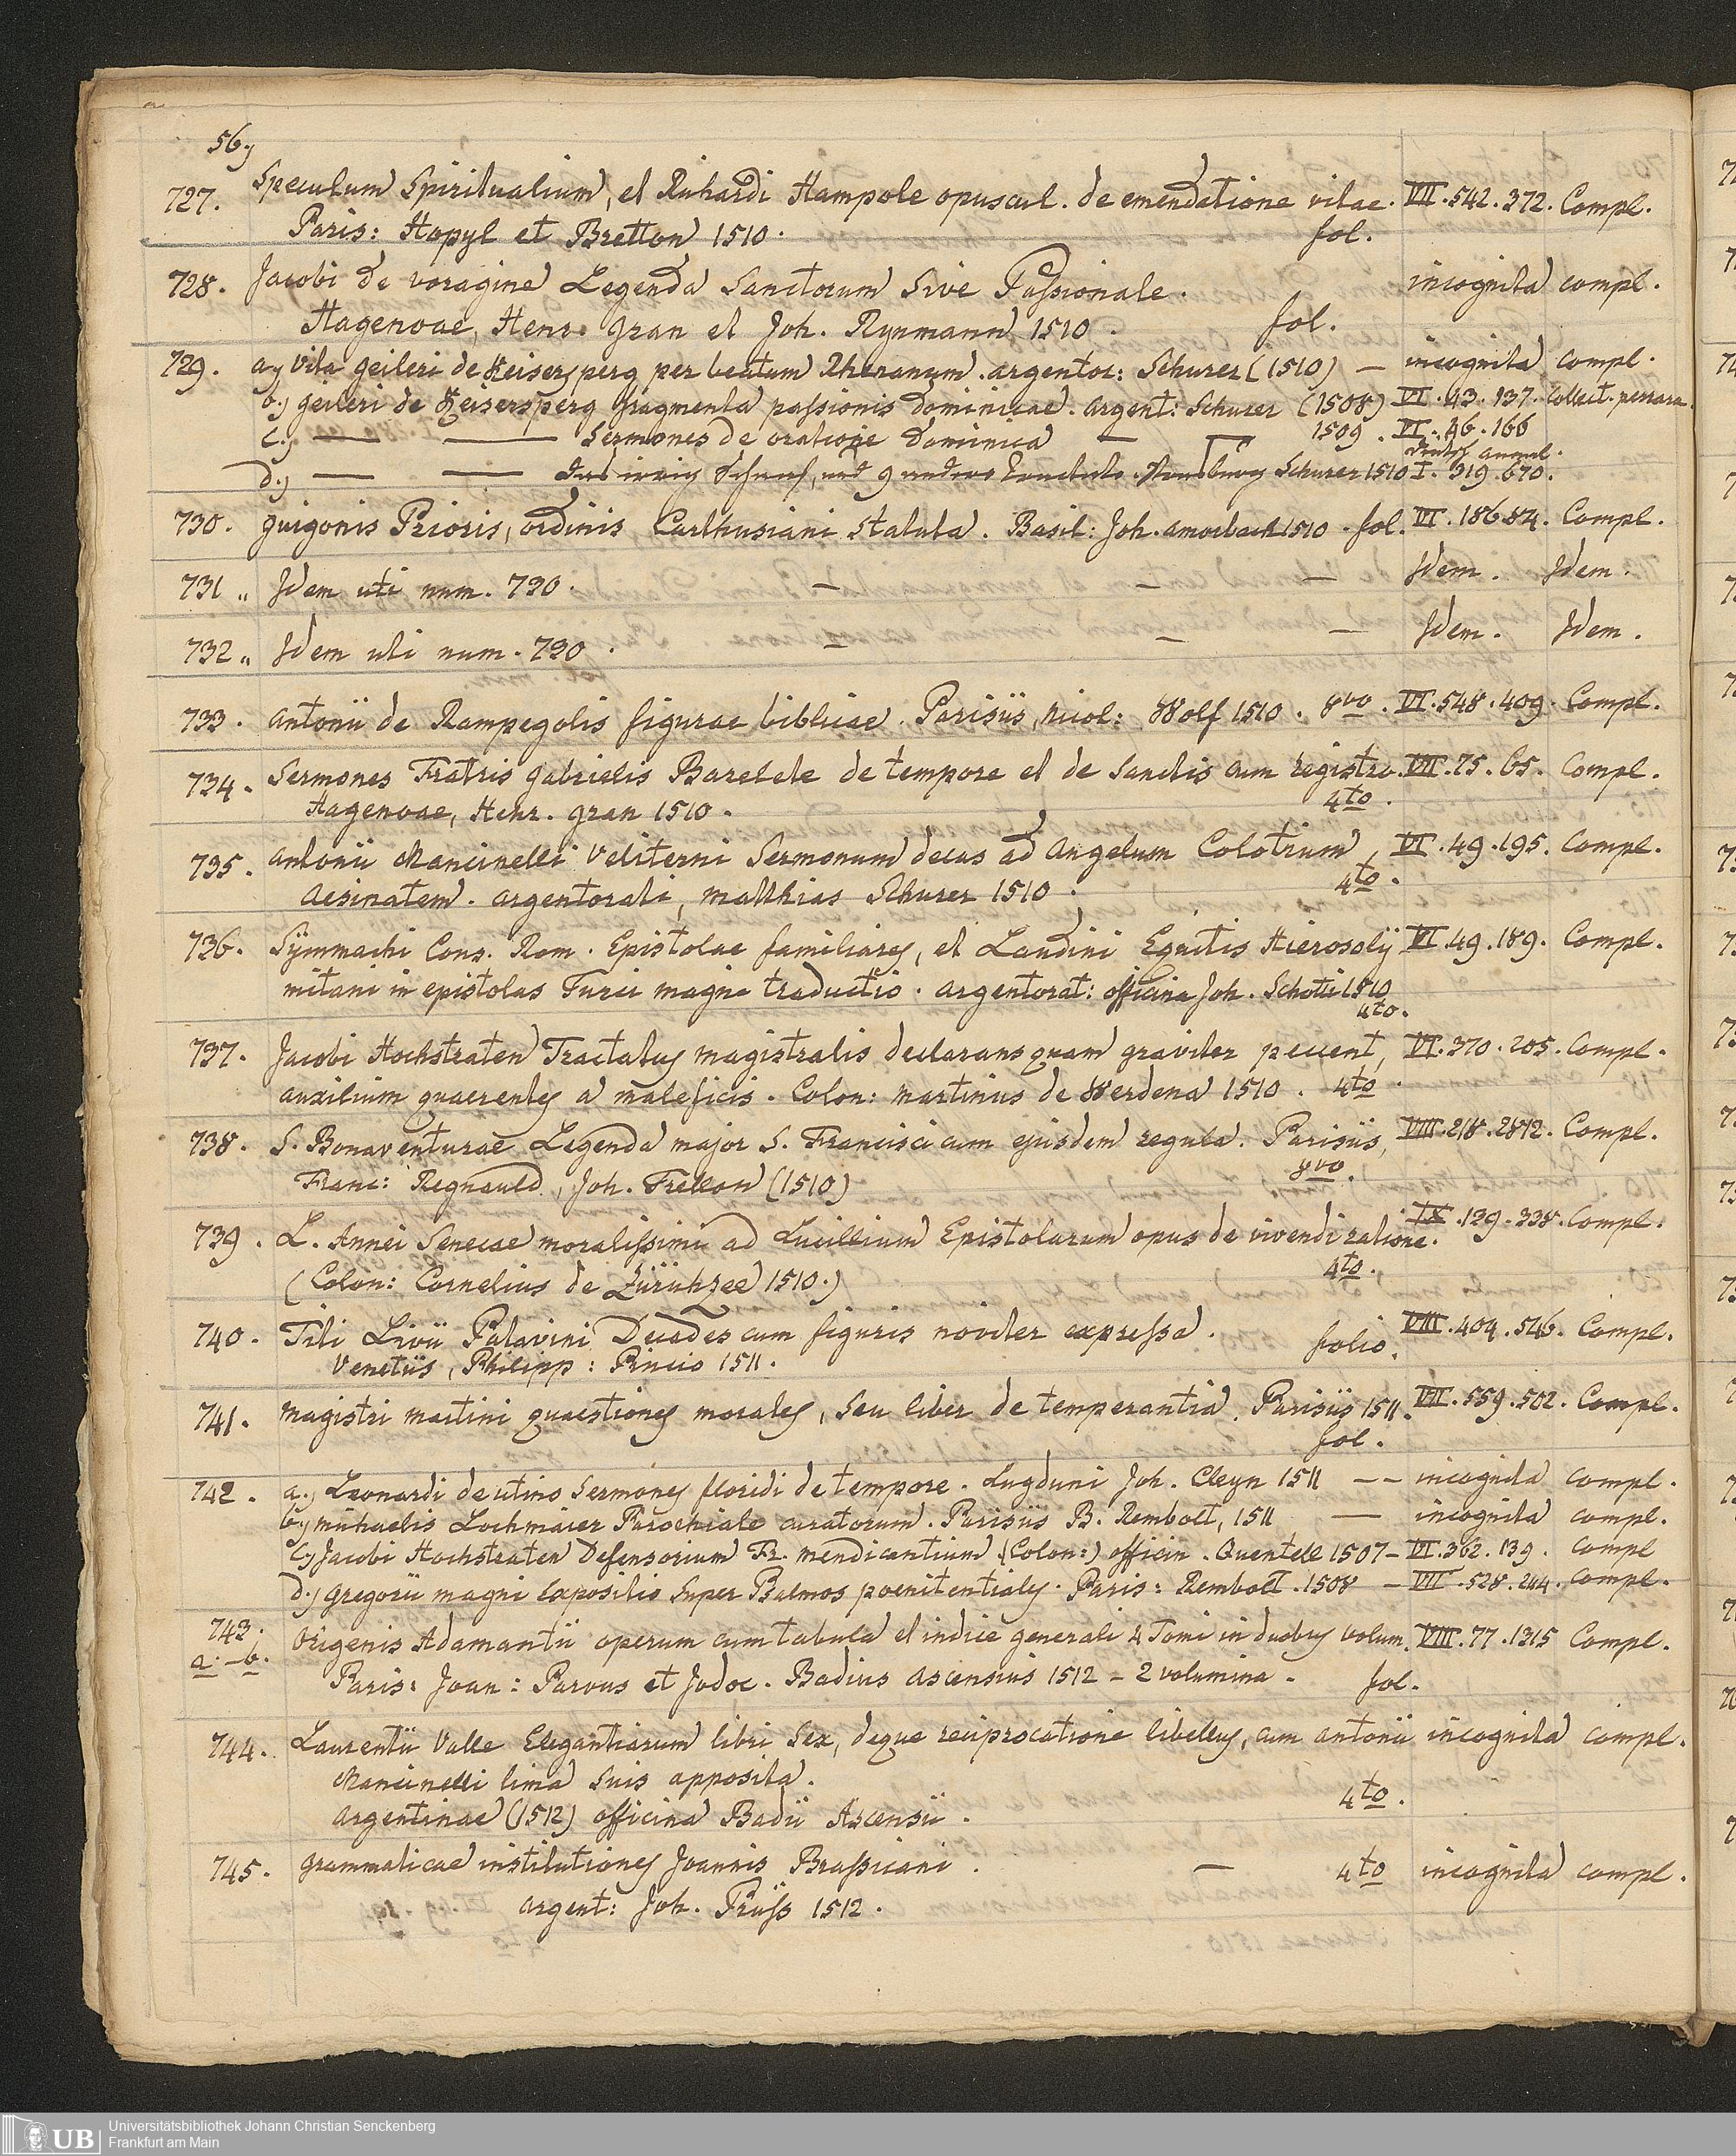 56.)
727. Speculum Spiritualium, et Richardi Hampole opuscul. de emendatione vitae. VII.542.372. Compl.
Paris: Hopyl et Bretton 1510. fol.
728. Jacobi de voragine Legenda Sanctorum Sive Passionale. incognita compl.
Hagenoae, Henr. Gran et Joh. Rynmann 1510. fol.
729. a.) Vita Geileri de Keisersperg per beatum Rhenanum. argentor: Schurer (1510) — incognita compl.
b.) Geileri de Keisersperg fragmenta passionis dominicae. Argent: Schurer (1508) VI.43.137. Collect. perrara
c.) — — Sermones de oratione dominica — — 1509. VI.46.166
deutsch annal.
d.) — — das irrig Schaaf, und 9 andere Tractate. Strasburg Schurer 1510 I.319.670.
730. Guigonis Prioris, ordinis Carthusiani Statuta. Basil: Joh. Amorbach 1510. fol. VI.186.84. Compl.
731 „ Idem uti num. 730. — — — Idem. Idem.
732 „ Idem uti num. 730. — — — Idem. Idem.
733. Antonii de Rampegolis figurae biblicae. Parisiis, Nicol: Wolf 1510. 8vo. VI.548.409. Compl.
734. Sermones Fratris Gabrielis Barelete de tempore et de Sanctis cum registro. VII.75.65. Compl.
Hagenoae, Henr. Gran 1510. 4to.
735. Antonii Mancinelli Veliterni Sermonum decus ad Angelum Colotium, VI.49.195. Compl.
Aesinatem. Argentorati, Matthias Schurer 1510. 4to.
736. Symmachi Cons. Rom. Epistolae familiares, et Laudini Equitis Hierosoly VI.49.189. Compl.
mitani in epistolas Turci magni traductio. Argentorat: officina Joh. Schotti 1510
4to.
737. Jacobi Hochstraten Tractatus magistralis declarans quam graviter peccent, VI.370.205. Compl.
auxilium quaerentes a maleficis. Colon: Martinus de Werdena 1510. 4to.
738. S. Bonaventurae Legenda major S. Francisci cum ejusdem regula. Parisiis, VIII.218.2872. Compl.
Franc: Regnauld, Joh. Frellon (1510) 8vo.
739. L. Annei Senecae moralissimi ad Lucillium Epistolarum opus de vivendi ratione. IX.129.338. Compl.
(Colon: Cornelius de Zürichzee 1510.) 4to.
740. Titi Livii Patavini Decades cum figuris noviter expressa. VIII.404.546. Compl.
Venetiis, Philipp: Pincio 1511. folio.
741. Magistri Martini quaestiones morales, seu liber de temperantia. Parisiis 1511. VII.559.502. Compl.
fol.
742. a.) Leonardi de Utino Sermones floridi de tempore. Lugduni Joh. Cleyn 1511 — — incognita compl.
b.) Michaelis Lochmaier Parochiale curatorum. Parisiis B. Rembolt, 1511 — incognita compl.
c.) Jacobi Hochstraten Defensorium Fr. mendicantium (Colon:) officin. Quentell 1507 — VI.362.139. Compl
d.) Gregorii magni Expositio Super Psalmos poenitentiales. Paris: Rembolt. 1508 — VII.528.244. Compl.
743. Origenis Adamantii operum cum tabula et indice generali 4 Tomi in duobus volum. VIII.77.1315 Compl.
a. - b. Paris: Joan: Parvus et Jodoc. Badius Ascensius 1512 — 2 volumina. fol.
744. Laurentii Valle Elegantiarum libri Sex, deque reciprocatione libellus, cum Antonii incognita compl.
Mancinelli lima suis apposita.
Argentinae (1512) officina Badii Ascensii. 4to.
745. Grammaticae institutiones Joannis Brassicani. — 4to incognita compl.
Argent: Joh. Prüss 1512.
UB Universitätsbibliothek Johann Christian Senckenberg
Frankfurt am Main